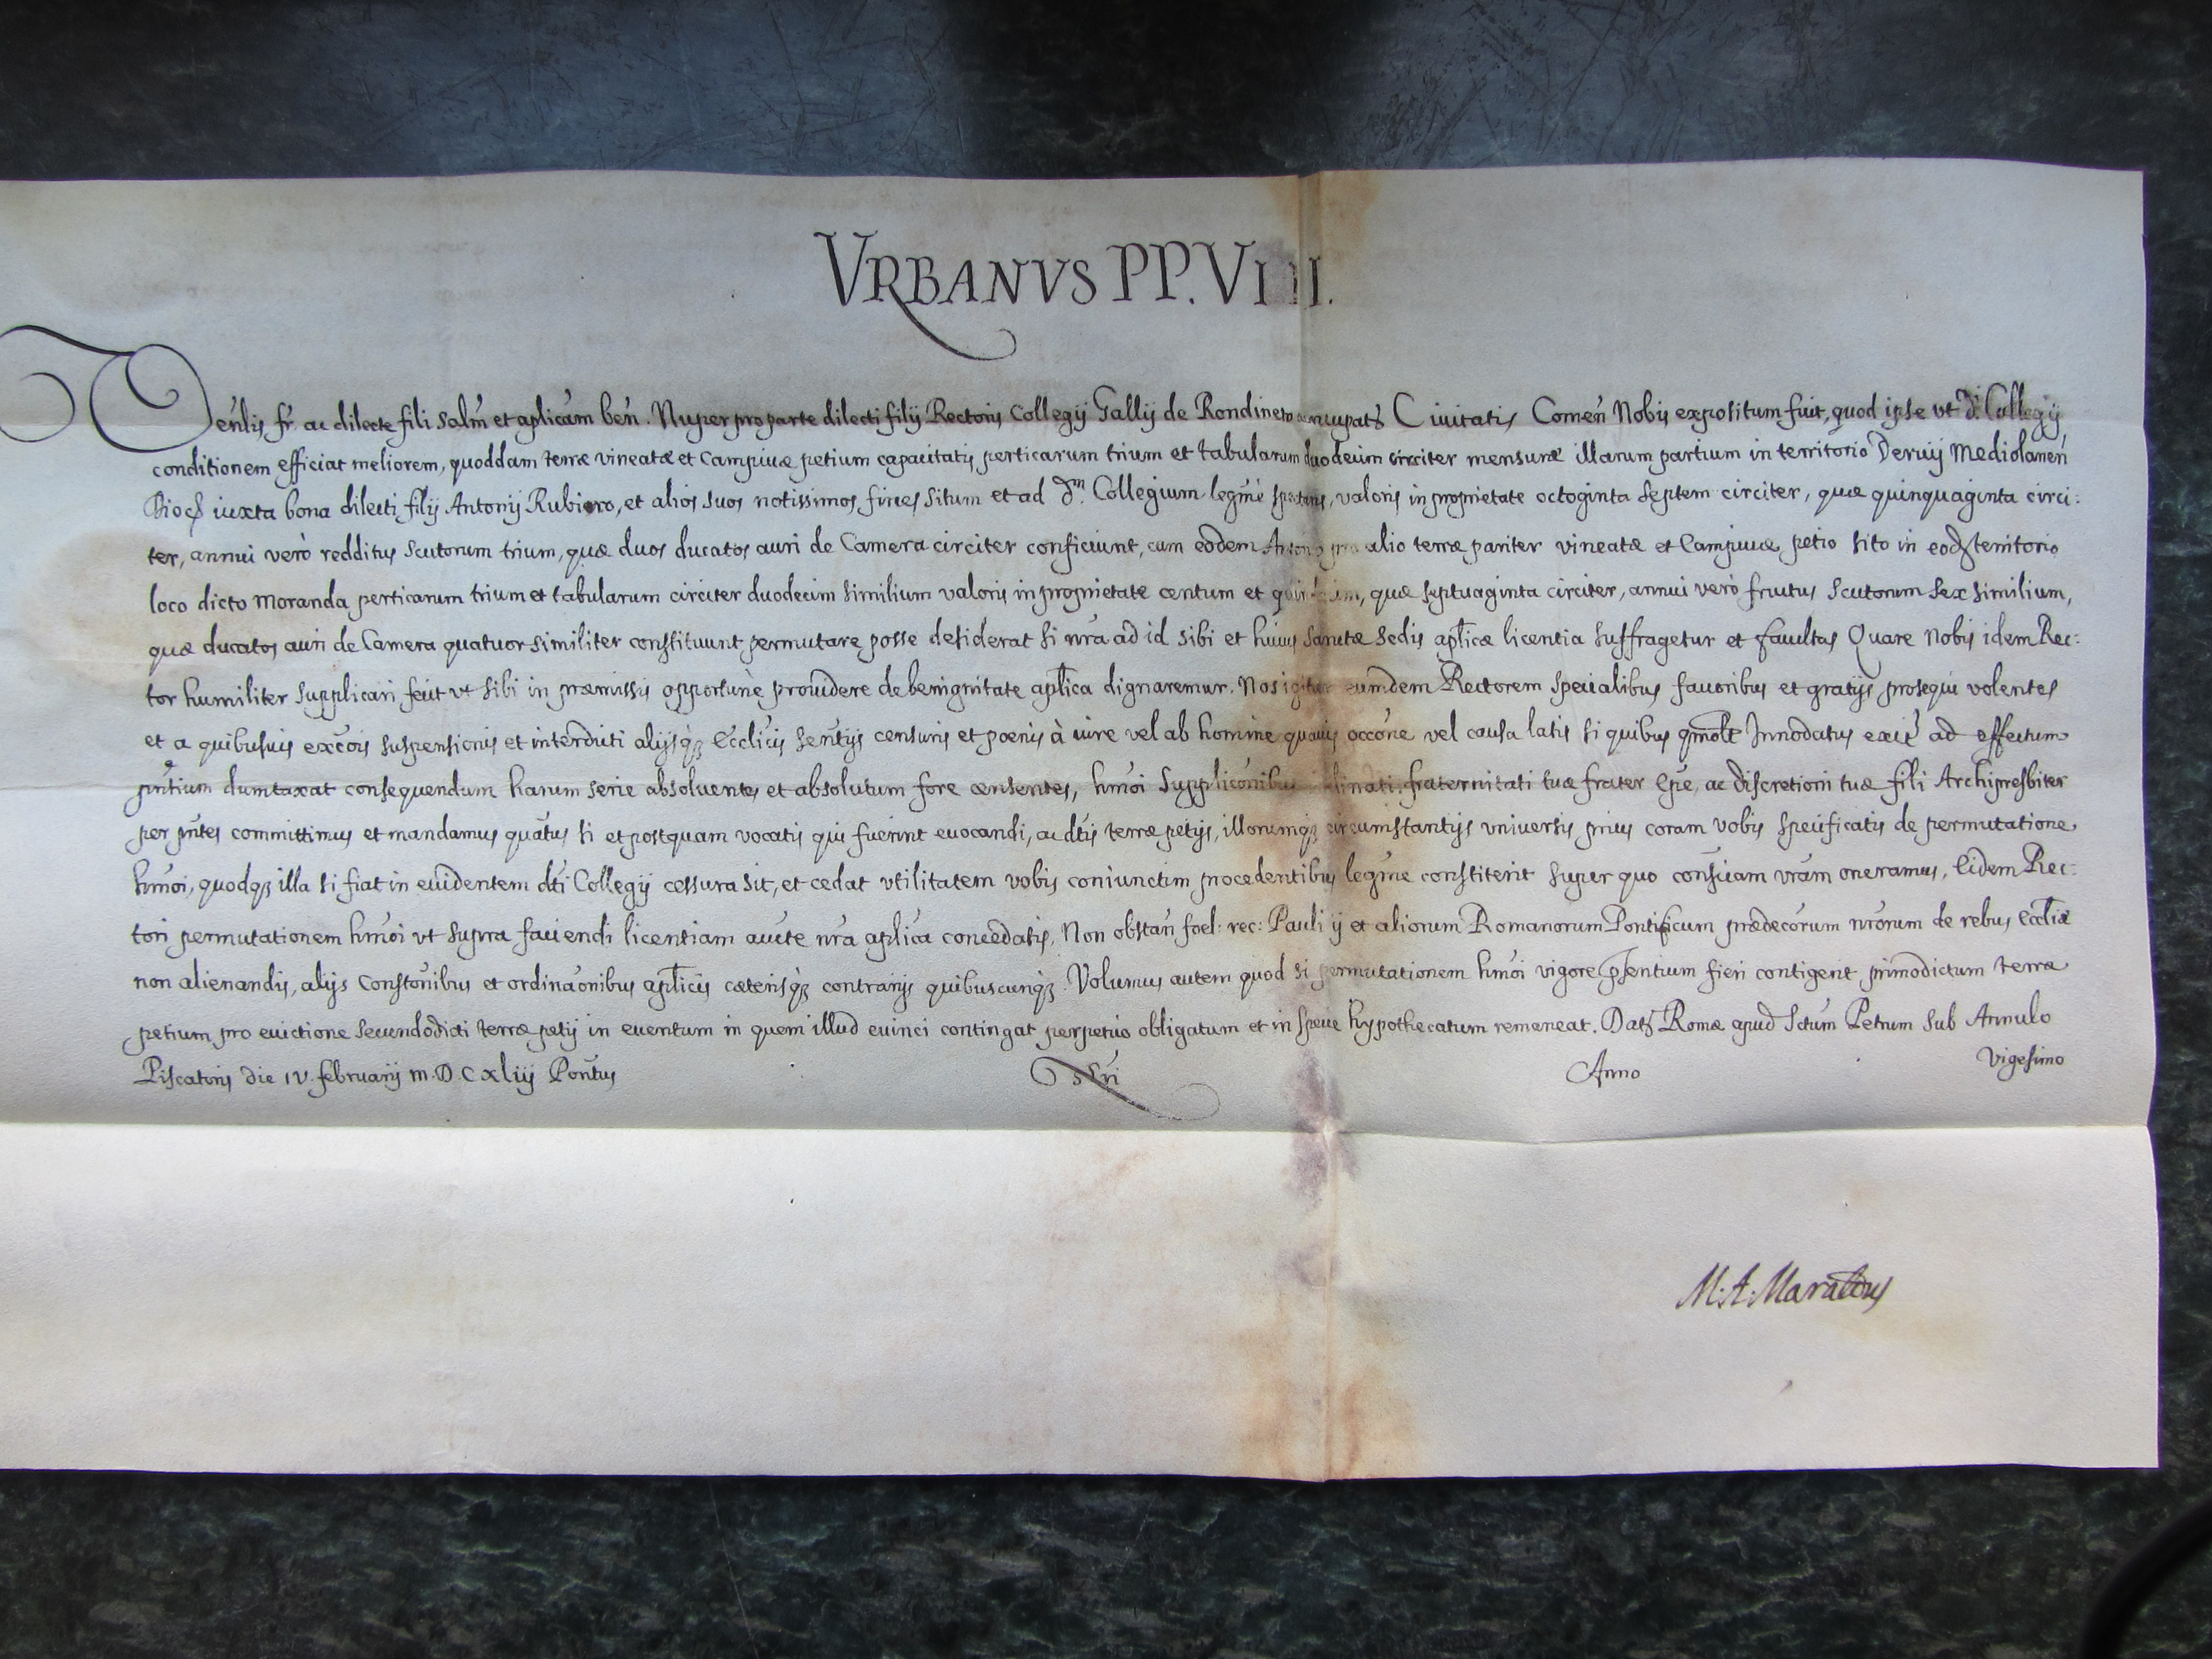 VRBANVS PP. VIII.
Venlis fr. ac dilecte fili salm et aplicam ben. Nuper pro parte dilecti filij Rectoris Collegij Gallij de Rondineto nuncupati Ciuitatis Comen Nobis expositum fuit, quod ipse vt d. Collegij
conditionem efficiat meliorem, quoddam terræ vineatæ et Campiuæ petium capacitatis perticarum trium et tabularum duodecim circiter mensuræ illarum partium in territorio Deruij Mediolanen
Dioc iuxta bona dilecti filij Antonij Rubi, et alios suos notissimos fines situm et ad dm Collegium legme spectans, valoris in proprietate octoginta septem circiter, quæ quinquaginta circi:
ter, annui verò redditus scutorum trium, quæ duos ducatos auri de Camera circiter conficiunt, cum eodem Antonio pro alio terræ pariter vineatæ et Campiuæ petio sito in eod territorio
loco dicto Moranda perticarum trium et tabularum circiter duodecim similium valoris in proprietate centum et quindecim, quæ septuaginta circiter, annui verò fructus scutorum sex similium,
quæ ducatos auri de Camera quatuor similiter constituunt permutare posse desiderat si nra ad id sibi et huius sanctæ sedis aplicæ licentia suffragetur et facultas Quare Nobis idem Rec:
tor humiliter supplicari fecit vt sibi in præmissis opportunè prouidere de benignitate aplica dignaremur. Nos igitur eumdem Rectorem specialibus fauoribus et gratijs prosequi volentes
et a quibusuis excois suspensionis et interdicti alijsq Ecclicis sentijs censuris et poenis à iure vel ab homine quauis occone vel causa latis si quibus qmolt Innodatus exit ad effectum
pntium dumtaxat consequendum harum serie absoluentes et absolutum fore censentes, hmoi supplicionibus inclinati, fraternitati tuæ frater Epe, ac discretioni tuæ fili Archipresbiter
per pntes committimus et mandamus quatus si et postquam vocatis qui fuerint euocandi, ac dtis terræ petijs, illorumq circumstantijs vniuersis prius coram vobis specificatis de permutatione
hmoi, quodq illa si fiat in euidentem dti Collegij cessura sit, et cedat vtilitatem vobis coniunctim procedentibus legme constiterit super quo consciam vram oneramus, Eidem Rec:
tori permutationem hmoi vt supra faciendi licentiam aucte nra aplica concedatis, Non obstan foel: rec: Pauli ij et aliorum Romanorum Pontificum prædecorum nrorum de rebus Eccliæ
non alienandis, alijs constonibus et ordinaonibus aplicis cæterisq contrarijs quibuscunq. Volumus autem quod si permutationem hmoi vigore pñsentium fieri contigerit primodictum terræ
petium pro euictione secundodicti terræ petij in euentum in quem illud euinci contingat perpetuo obligatum et in specie hypothecatum remaneat. Dat Romæ apud Sctum Petrum sub Annulo
Piscatoris die IV. februarij M.D.C.xliij Pontus Nri Anno Vigesimo
M. A. Maraldus